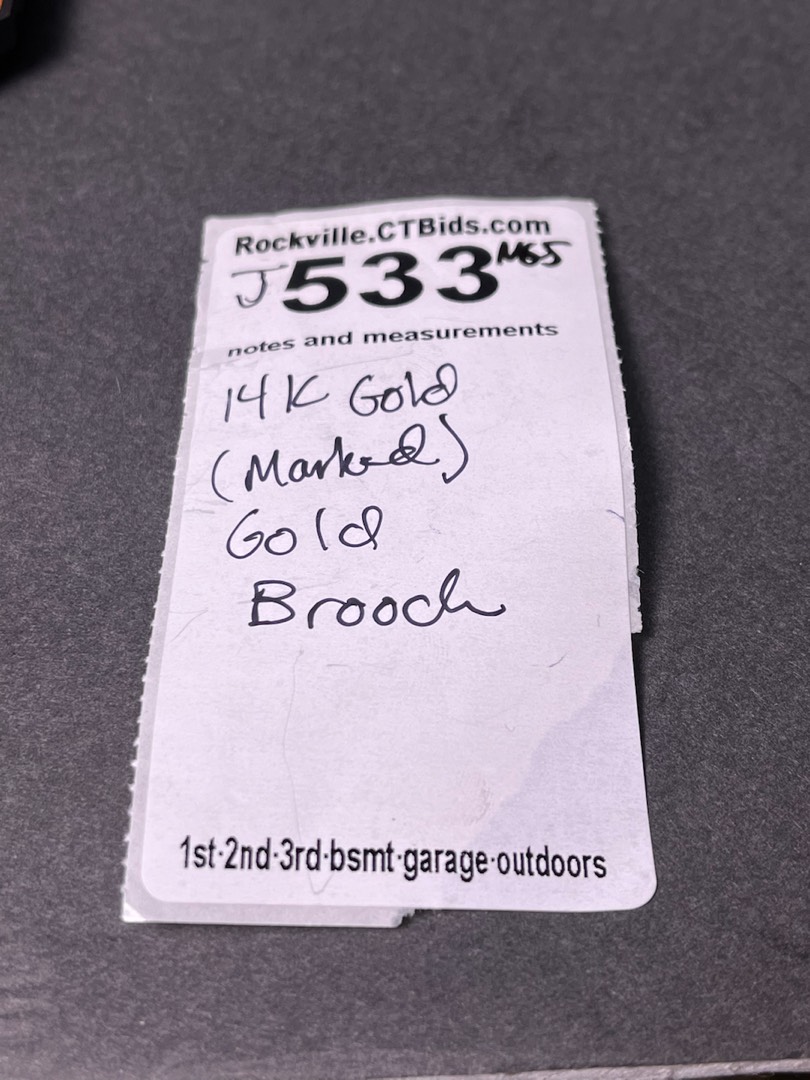 Rockville.CTBids.com
J533 MG5
notes and measurements
14K Gold
(Marked)
Gold
Brooch
1st·2nd·3rd·bsmt·garage·outdoors